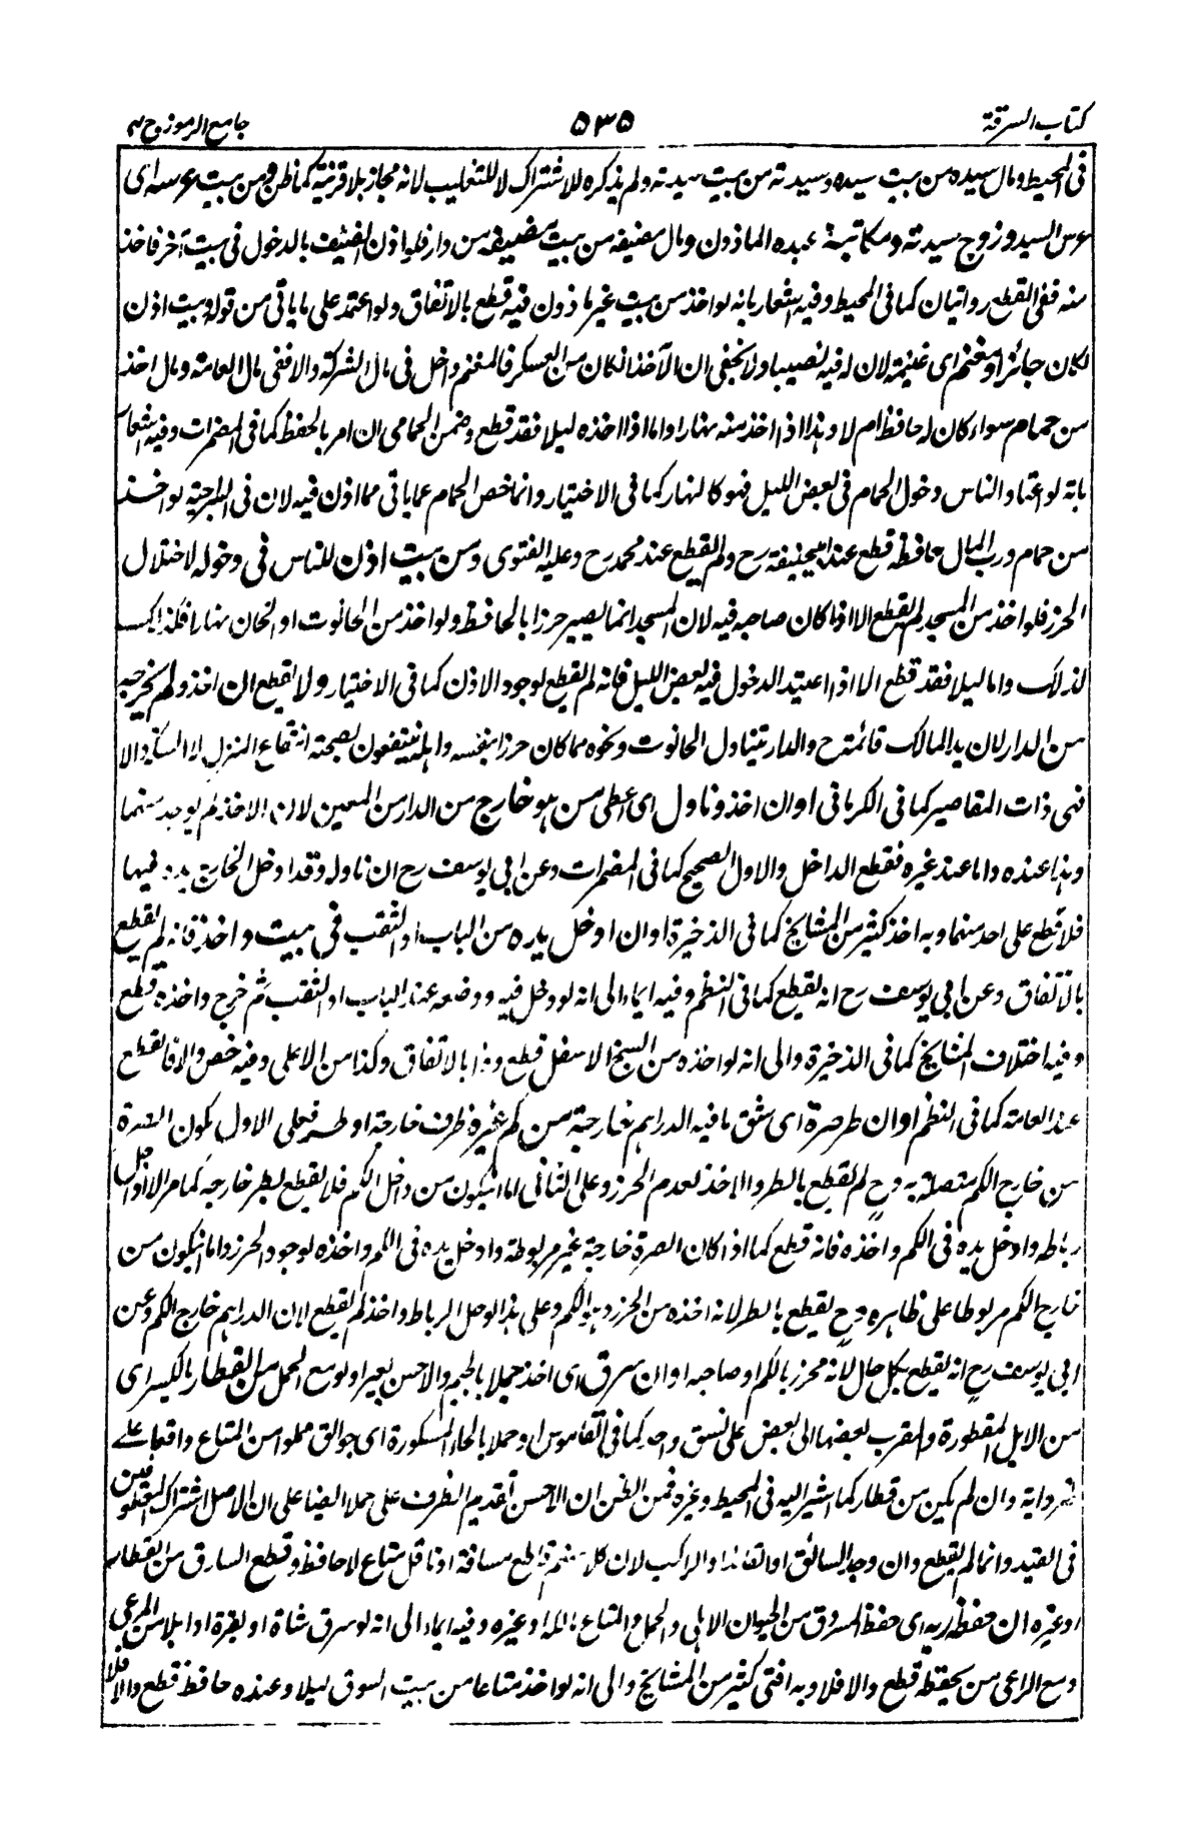 كتاب السرقة
٥٣٥
جامع الرموز ج ٣
فى المحيط ومال سيده من بيت سيده وسيدته من بيت سيدته ولم يذكره للاشتراك لا للتغليب لانه مجاز بلا قرينة كما ظن ومن بيت عرسه اى
عرس السيد وزوج سيدته ومكاتبه عبده الماذون ومال مضيفه من بيت مضيفه من دار فلو اذن الضيف بالدخول فى بيت آخر فاخذ
منه ففى القطع روايتان كما فى المحيط وفيه اشعار بانه لو اخذ من بيت غير ماذون فيه قطع بالاتفاق ولو اعتمد على ما ياتى من قوله وبيت اذن
لكان جائزا او مغنم اى غنيمة لان له فيه نصيبا ولا يخفى ان الآخذ ان كان من العسكر فالمغنم داخل فى مال الشركة والا ففى مال العامة ومال اخذ
من حمام سواء كان له حافظ ام لا وهذا اذا اخذ منه نهارا واما اذا اخذه ليلا فقد قطع وضمن الحمامى ان امر بالحفظ كما فى المضمرات وفيه اشعار
بانه لو اعتاد الناس دخول الحمام فى بعض الليل فهو كالنهار كما فى الاختيار وانما خص الحمام عما ياتى مما اذن فيه لان فى الراجية لو اخذ
من حمام ورب المال حافظه قطع عند ابيحنيفة رح ولم يقطع عند محمد رح وعليه الفتوى ومن بيت اذن للناس فى دخوله لاختلال
الحرز فلو اخذ من المسجد لم يقطع الا اذا كان صاحبه فيه لان المسجد انما يصير حرزا بالحافظ ولو اخذ من الحانوت او الخان نهارا فكذلك
لذلك واما ليلا فقد قطع الا اذا اعتيد الدخول فيه بعض الليل فانه لم يقطع لوجود الاذن كما فى الاختيار ولا يقطع ان اخذ ولم يخرجه
من الدار لان يد المالك قائمة ح والدار يتناول الحانوت ونحوه مما كان حرزا بنفسه واهله ينتفعون بصحنه انتفاع المنزل والا
فهى ذات المقاصير كما فى الكرمانى او ان اخذ وناول اى اعطى من هو خارج من الدار من المعين لان الاخذ لم يوجد منهما
وهذا عنده واما عند غيره فقطع الداخل والاول الصحيح كما فى المضمرات وعن ابى يوسف رح ان ناوله وقد ادخل الخارج يده فيها
فلا قطع على احد منهما وبه اخذ كثير من المشايخ كما فى الذخيرة او ان ادخل يده من الباب او الثقب فى بيت واخذ فانه لم يقطع
بالاتفاق وعن ابى يوسف رح انه يقطع كما فى النظم وفيه ايماء الى انه لو دخل فيه ووضعه عند الباب او الثقب ثم خرج واخذه قطع
وفيه اختلاف المشايخ كما فى الذخيرة والى انه لو اخذه من السيخ الاسفل قطع وهذا بالاتفاق وكذا من الاعلى وفيه خص والا فالقطع
عند العامة كما فى النظم او ان طر صرة اى شق ما فيه الدراهم خارجة من كم غيره ظرف خارجة او طر فعلى الاول يكون الصرة
من خارج الكم متصلة به وح لم يقطع بالطر والاخذ لعدم الحرز وعلى الثانى اما ان يكون من داخل الكم فلا يقطع بطر خارجه كما مر الا اذا حل
رباطه وادخل يده فى الكم واخذه فانه قطع كما اذا كان الصرة خارجة غير مربوطة وادخل يده فى الكم واخذه لوجود الحرز واما ان يكون من
خارج الكم مربوطا على ظاهره وح يقطع بالطر لانه اخذه من الحرز وهو الكم وعلى هذا لو حل الرباط واخذ لم يقطع لان الدراهم خارج الكم وعن
ابى يوسف رح انه يقطع بكل حال لانه محرز بالكم او صاحبه او ان سرق اى اخذ جملا بالجيم والاحسن بعيرا ولو مع الحمل من القطار بالكسر اى
من الابل المقطورة والمقرب بعضها الى بعض على نسق واحد كما فى القاموس او حملا بالحاء المكسورة اى جوالق مملوا من المتاع واقعا على
ظهر دابة وان لم يكن من قطار كما اشير اليه فى المحيط وغيره فمن الظن ان الاحسن تقديم الظرف على حملا ايضا على ان الاصل اشتراك المعطوفين
فى القيد وانما لم يقطع وان وجد السائق او القائد او الراكب لان كلا منهم قاطع مسافة او ناقل متاع لا حافظ وقطع السارق من القطار
او غيره ان حفظه ربه اى حفظ المسروق من الحيوان الاهلى والحمل والمتاع المالك او غيره وفيه ايماء الى انه لو سرق شاة او بقرة او ابلا من المرعى
ومع الراعى من يحفظه قطع والا فلا وبه افتى كثير من المشايخ والى انه لو اخذ متاعا من بيت السوق ليلا وعنده حافظ قطع والا فلا